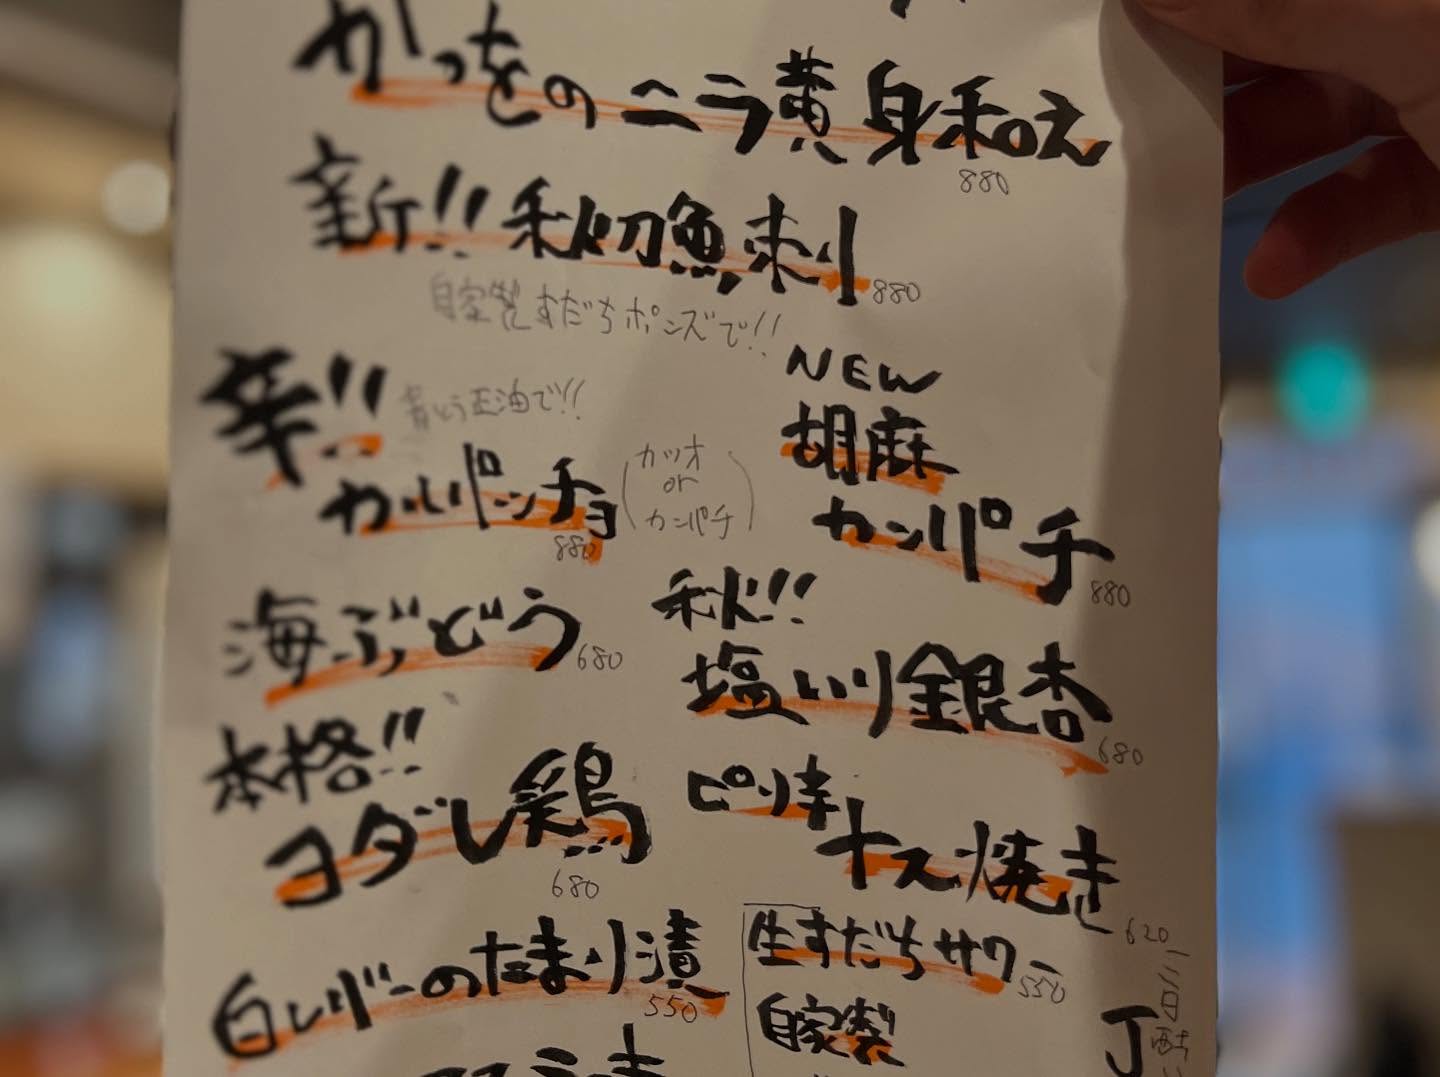 かつをのニラ黄身和え
880
新!!秋刀魚刺
880
自家製すだちポンズで!!
辛!!
青とう玉油で!!
カルパッチョ
880
(カツオ or カンパチ)
NEW
胡麻
カンパチ
880
海ぶどう
680
秋!!
塩いり銀杏
680
本格!!
ヨダレ鶏
680
ピリ辛
ナス焼き
620
白レバーのたまり漬
550
生すだちサワー
550
自家製